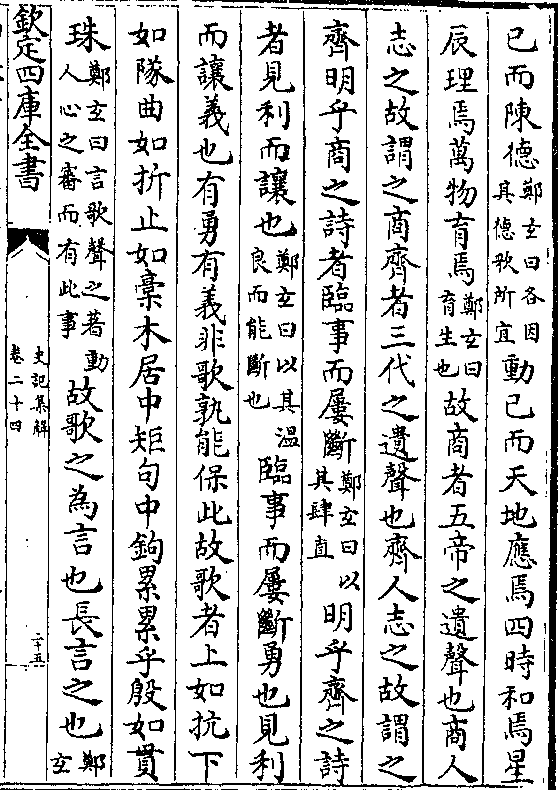 己而陳德鄭玄曰各因其德歌所宜動己而天地應焉四時和焉星
辰理焉萬物育焉鄭玄曰育生也故商者五帝之遺聲也商人
志之故謂之商齊者三代之遺聲也齊人志之故謂之
齊明乎商之詩者臨事而屢斷鄭玄曰以其肆直明乎齊之詩
者見利而讓也鄭玄曰以其温良而能斷也臨事而屢斷勇也見利
而讓義也有勇有義非歌孰能保此故歌者上如抗下
如隊曲如折止如槀木居中矩句中鉤累累乎殷如貫
珠鄭玄曰言歌聲之著動人心之審而有此事故歌之為言也長言之也鄭玄
欽定四庫全書
史記集解
卷二十四
二十五